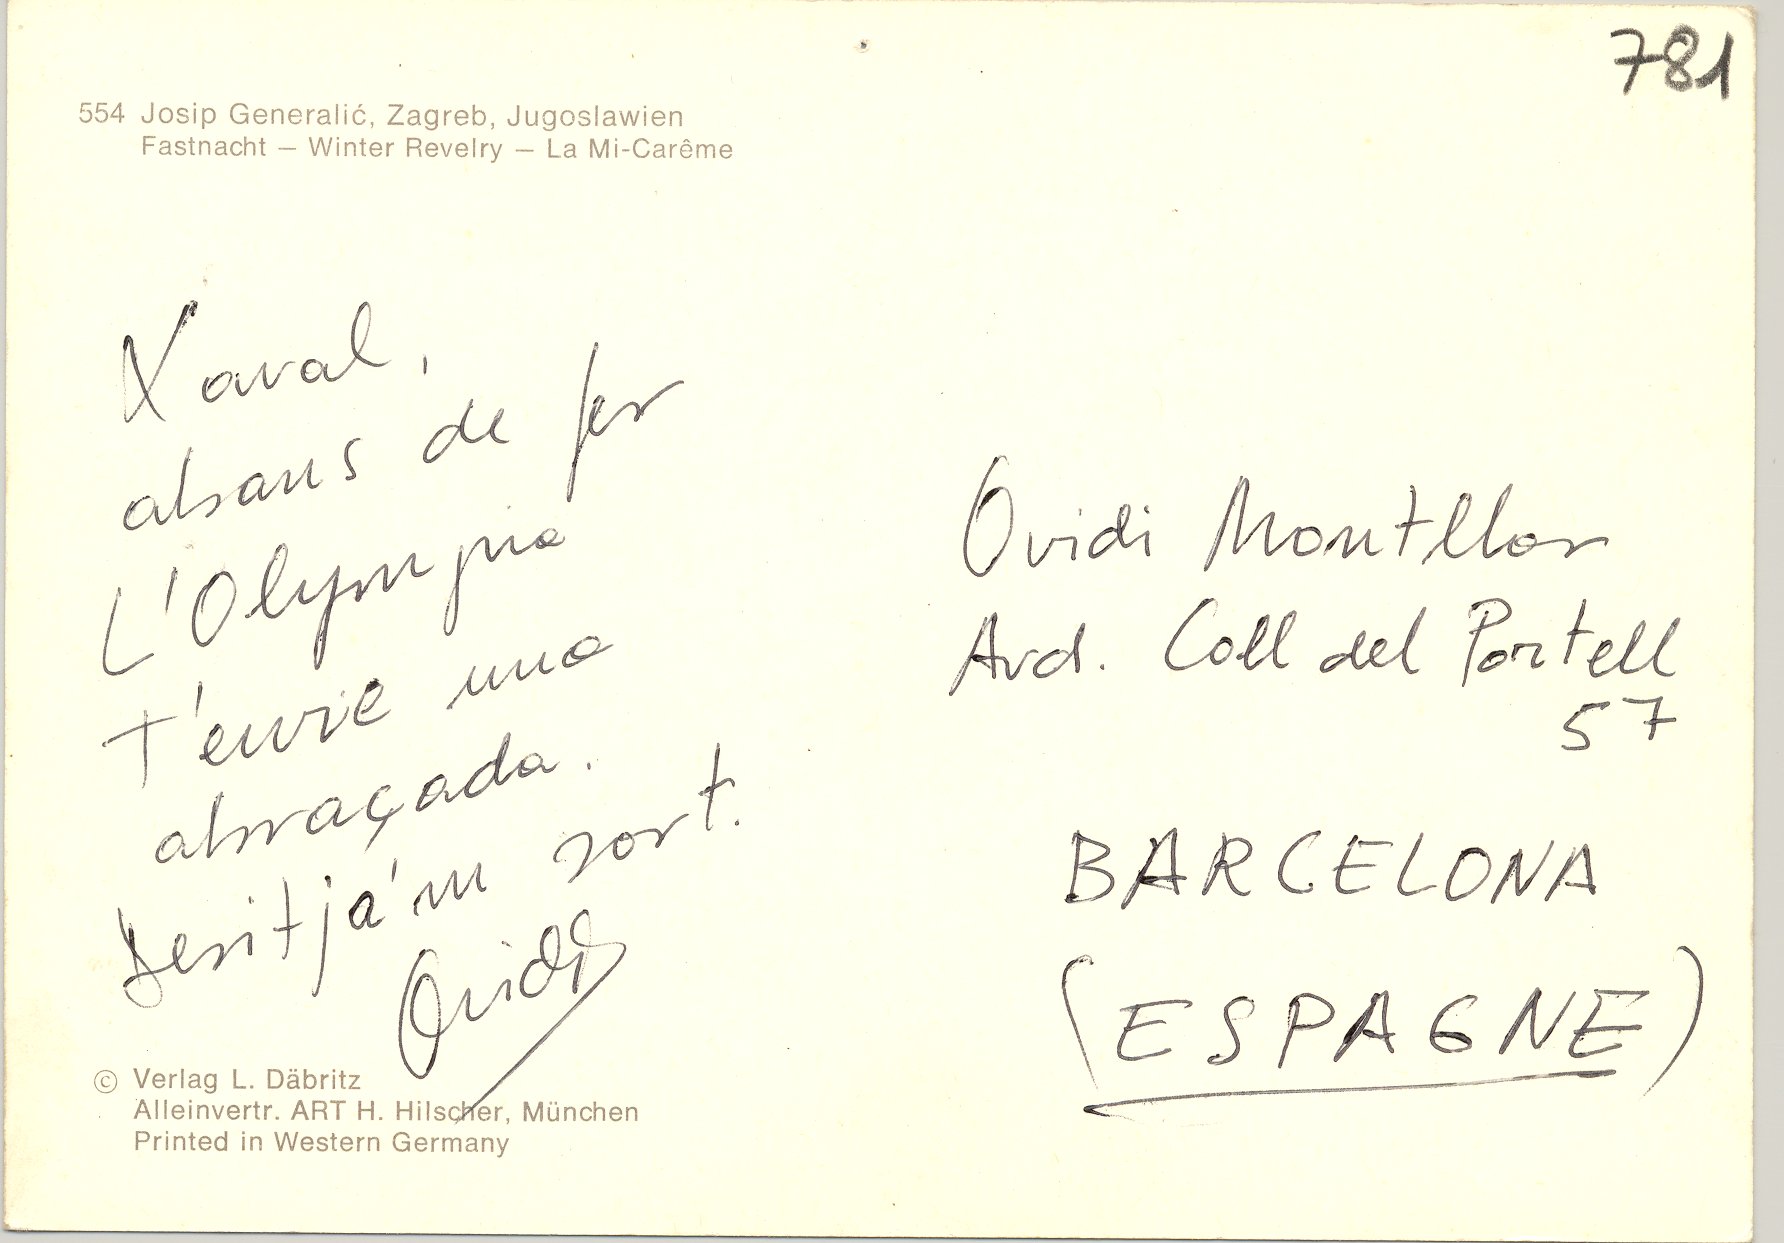 781
554 Josip Generalić, Zagreb, Jugoslawien
Fastnacht – Winter Revelry – La Mi-Carême
Xaval,
abans de fer
L'Olympia
t'envie una
abraçada.
Desitja'm sort.
Ovidi
© Verlag L. Däbritz
Alleinvertr. ART H. Hilscher, München
Printed in Western Germany
Ovidi Montllor
Avd. Coll del Portell
57
BARCELONA
(ESPAGNE)